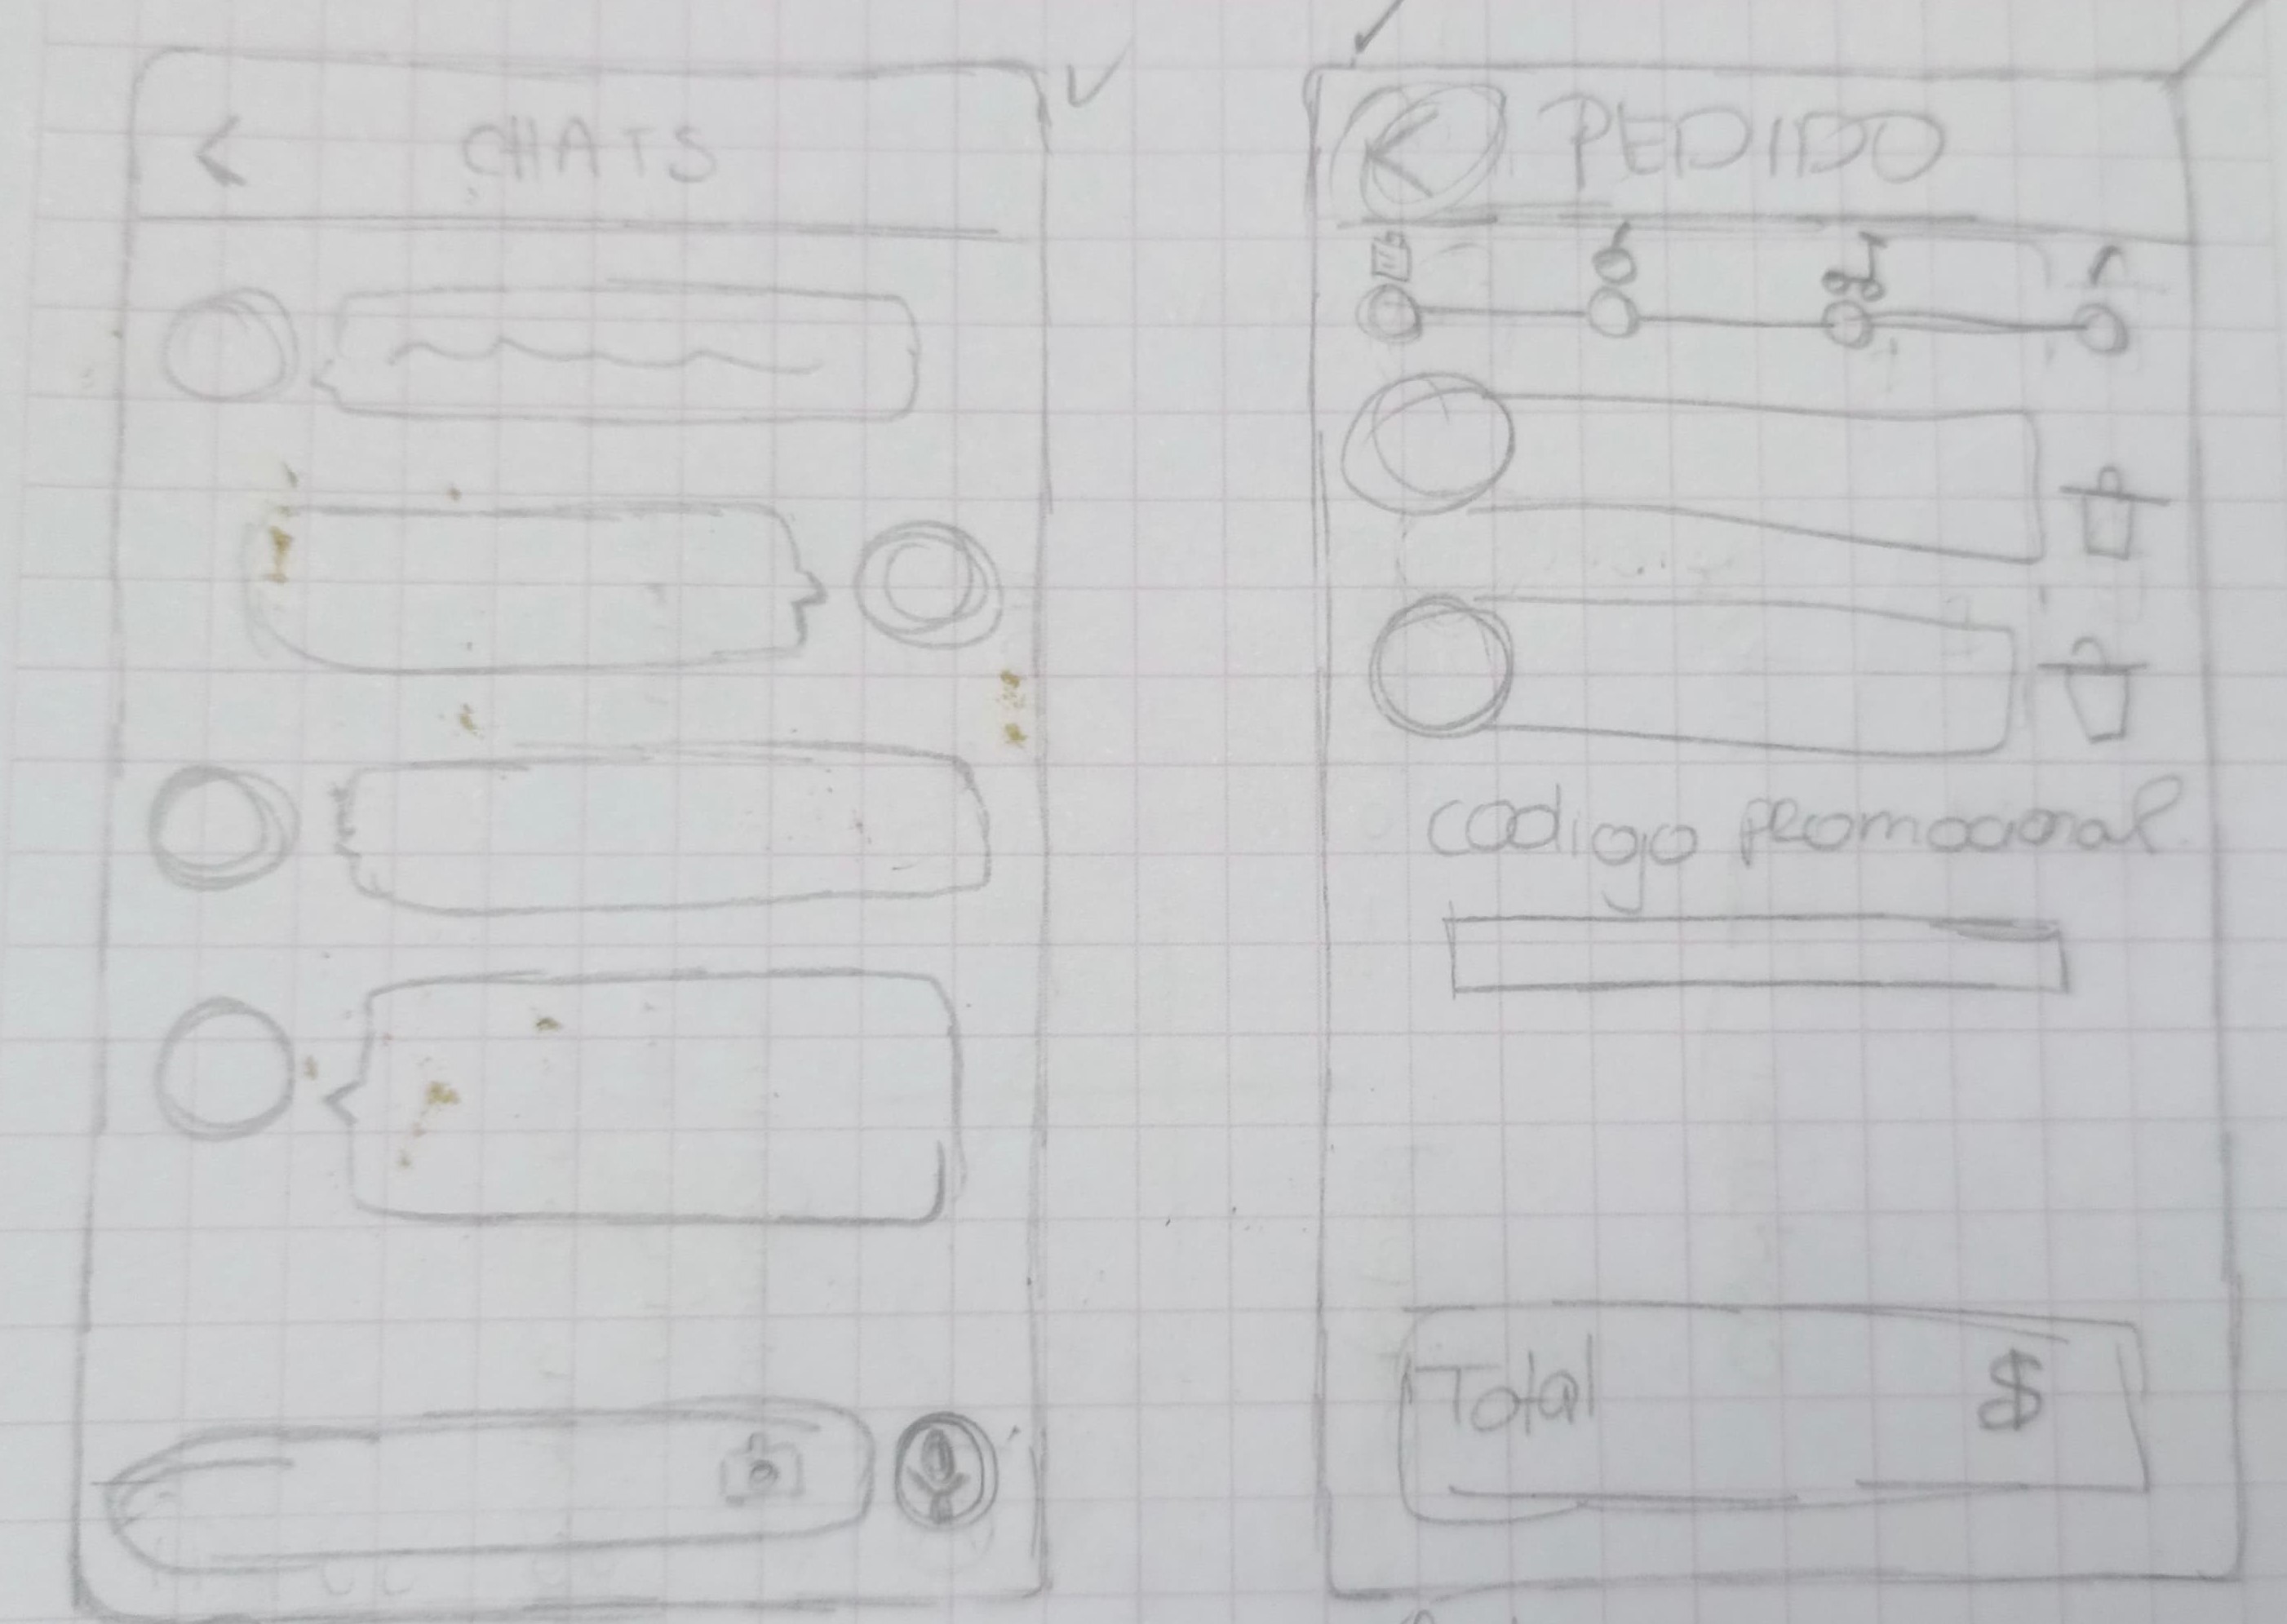 CHATS
PEDIDO
codigo promocional
Total $